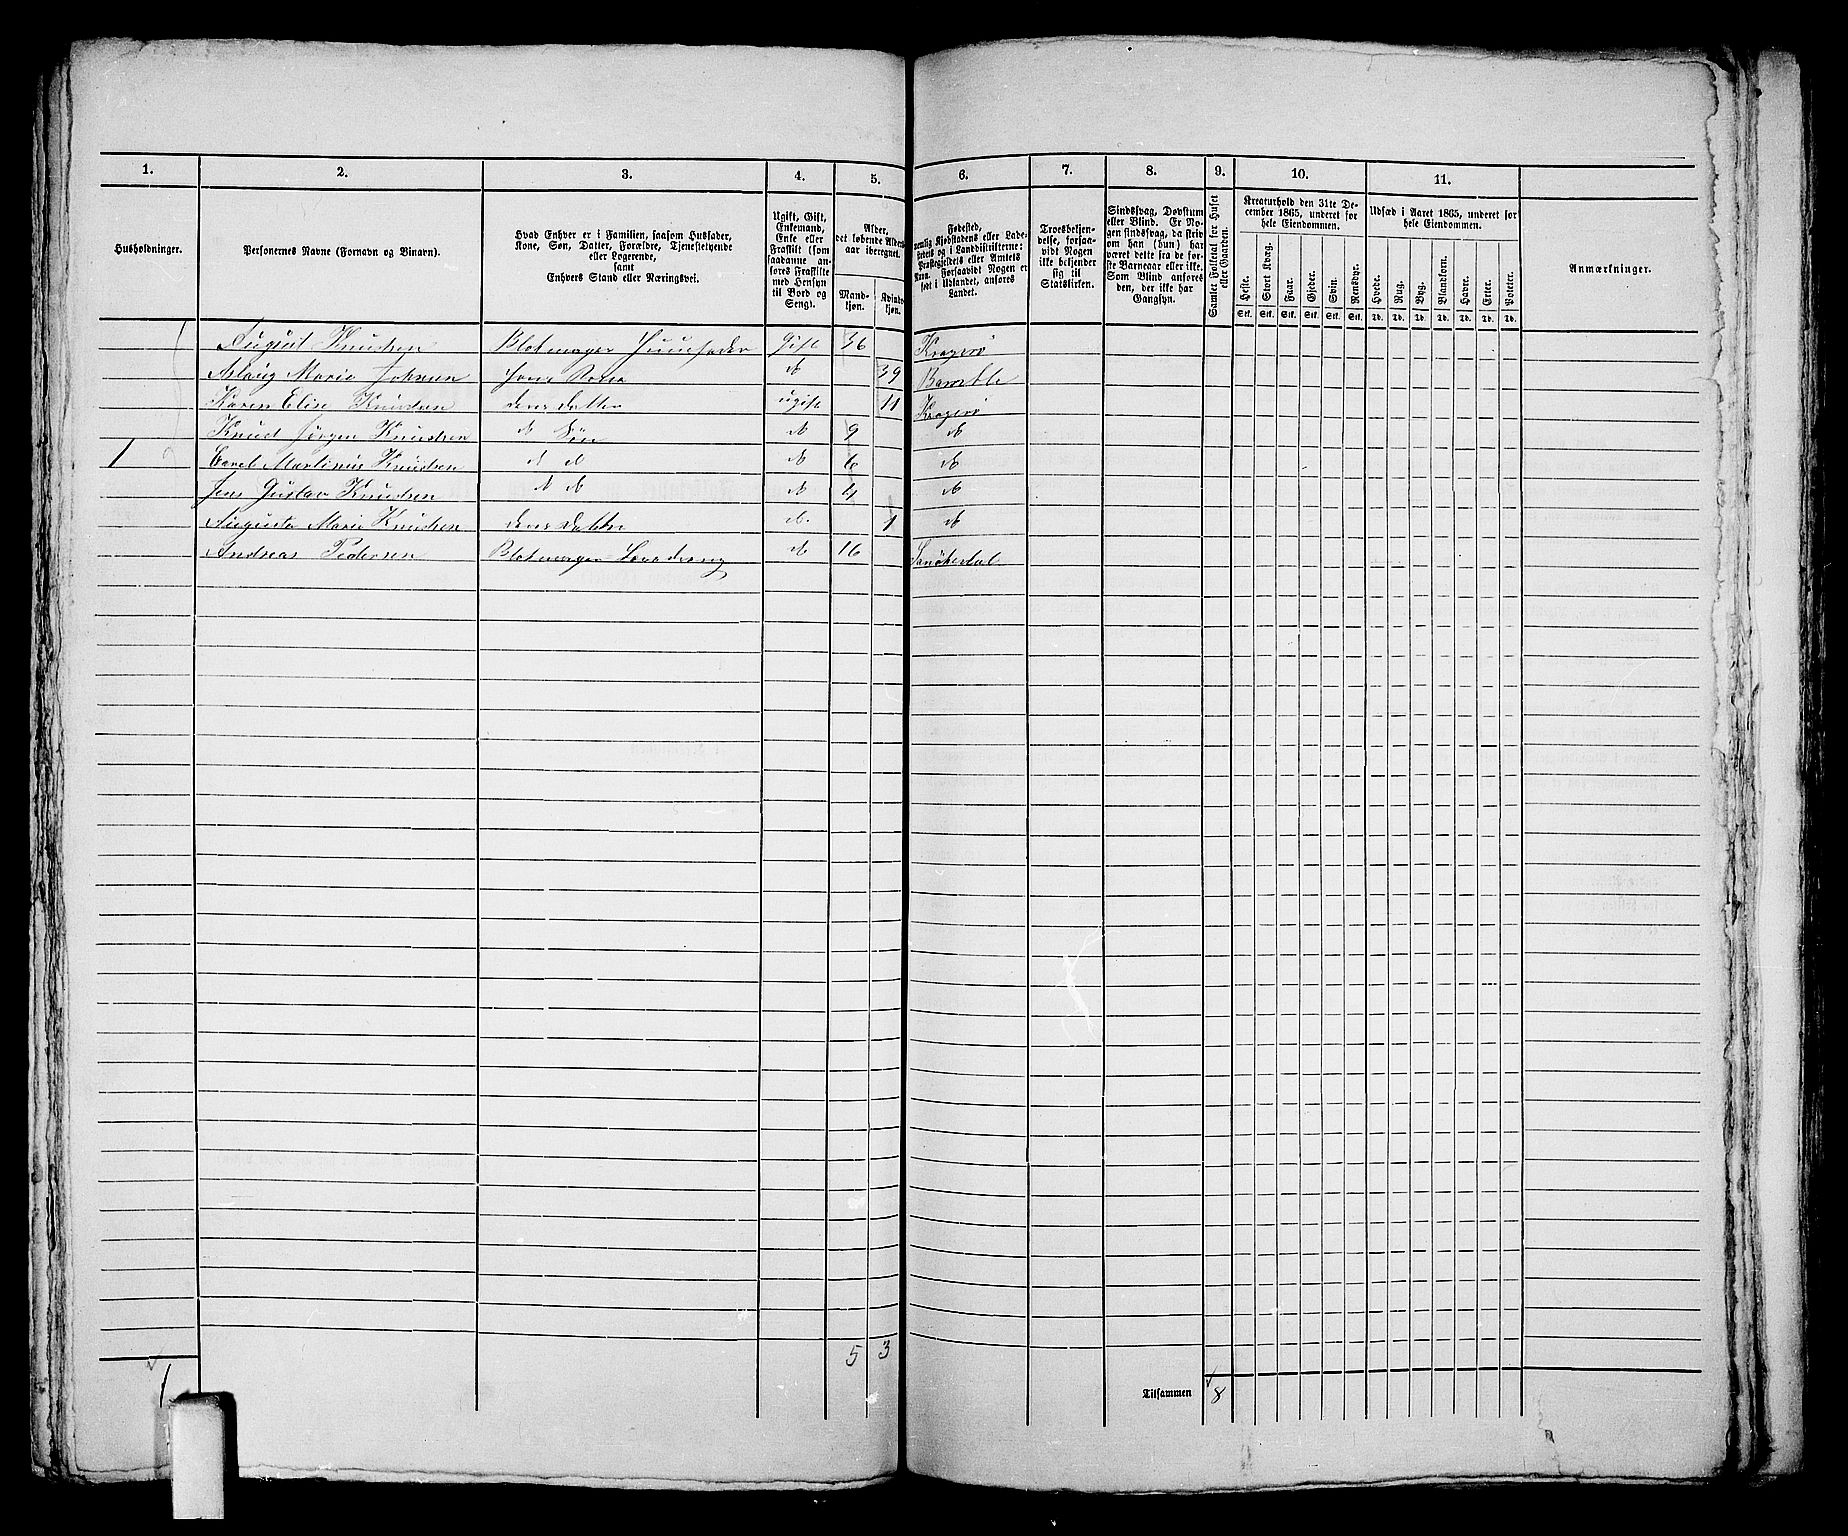 1. 2. 3. 4. 5. 6. 7. 8. 9. 10. 11.
Husholdninger.
Personernes Navne (Fornavn og Binavn).
Hvad Enhver er i Familien, saasom Husfader,
Kone, Søn, Datter, Forældre, Tjenestetyende
eller Logerende,
samt
Enhvers Stand eller Næringsvei.
Ugift, Gift,
Enkemand,
Enke eller
Fraskilt (som
saadanne an-
føres Fraskilte
med Hensyn
til Bord og
Seng).
Alder,
det løbende Alders-
aar iberegnet.
Mand-
kjøn.
Kvinde-
kjøn.
Fødested,
nemlig Kjøbstadens eller Lade-
stedets og i Landdistrikterne:
Præstegjeldets eller Amtets
Navn. Forsaavidt Nogen er
født i Udlandet, anføres
Landet.
Troesbekjen-
delse, forsaa-
vidt Nogen
ikke bekjender
sig til
Statskirken.
Sindssvag, Døvstum
eller Blind. Er No-
gen sindssvag, da skriv
om han (hun) har
været dette fra de før-
ste Barneaar eller ikke.
Som Blind anføres
den, der ikke har
Gangsyn.
Samlet Folketal for Huset
eller Gaarden.
Kreaturhold den 31te De-
cember 1865, underet for
hele Eiendommen.
Heste. Stort Kvæg. Faar. Gjeder. Svin. Rensdyr.
Stk. Stk. Stk. Stk. Stk. Stk.
Udsæd i Aaret 1865, underet for
hele Eiendommen.
Hvede. Rug. Byg. Blandkorn. Havre. Erter. Poteter.
Td. Td. Td. Td. Td. Td. Td.
Anmærkninger.
August Knudsen Blokmager Huusfader Gift 36 Kragerø
Aslaug Marie Johnsen Hans Kone do 39 Bamble
Karen Elise Knudsen deres Datter ugift 11 Kragerø
Knud Jørgen Knudsen do Søn do 9 do
1 Carel Martinius Knudsen do do do 6 do
Jens Gustav Knudsen do do do 4 do
Augusta Marie Knudsen deres Datter do. 1 do
Andreas Pedersen Blokmager-Læredreng do 16 Sanøkedal
5 3
1 Tilsammen 8